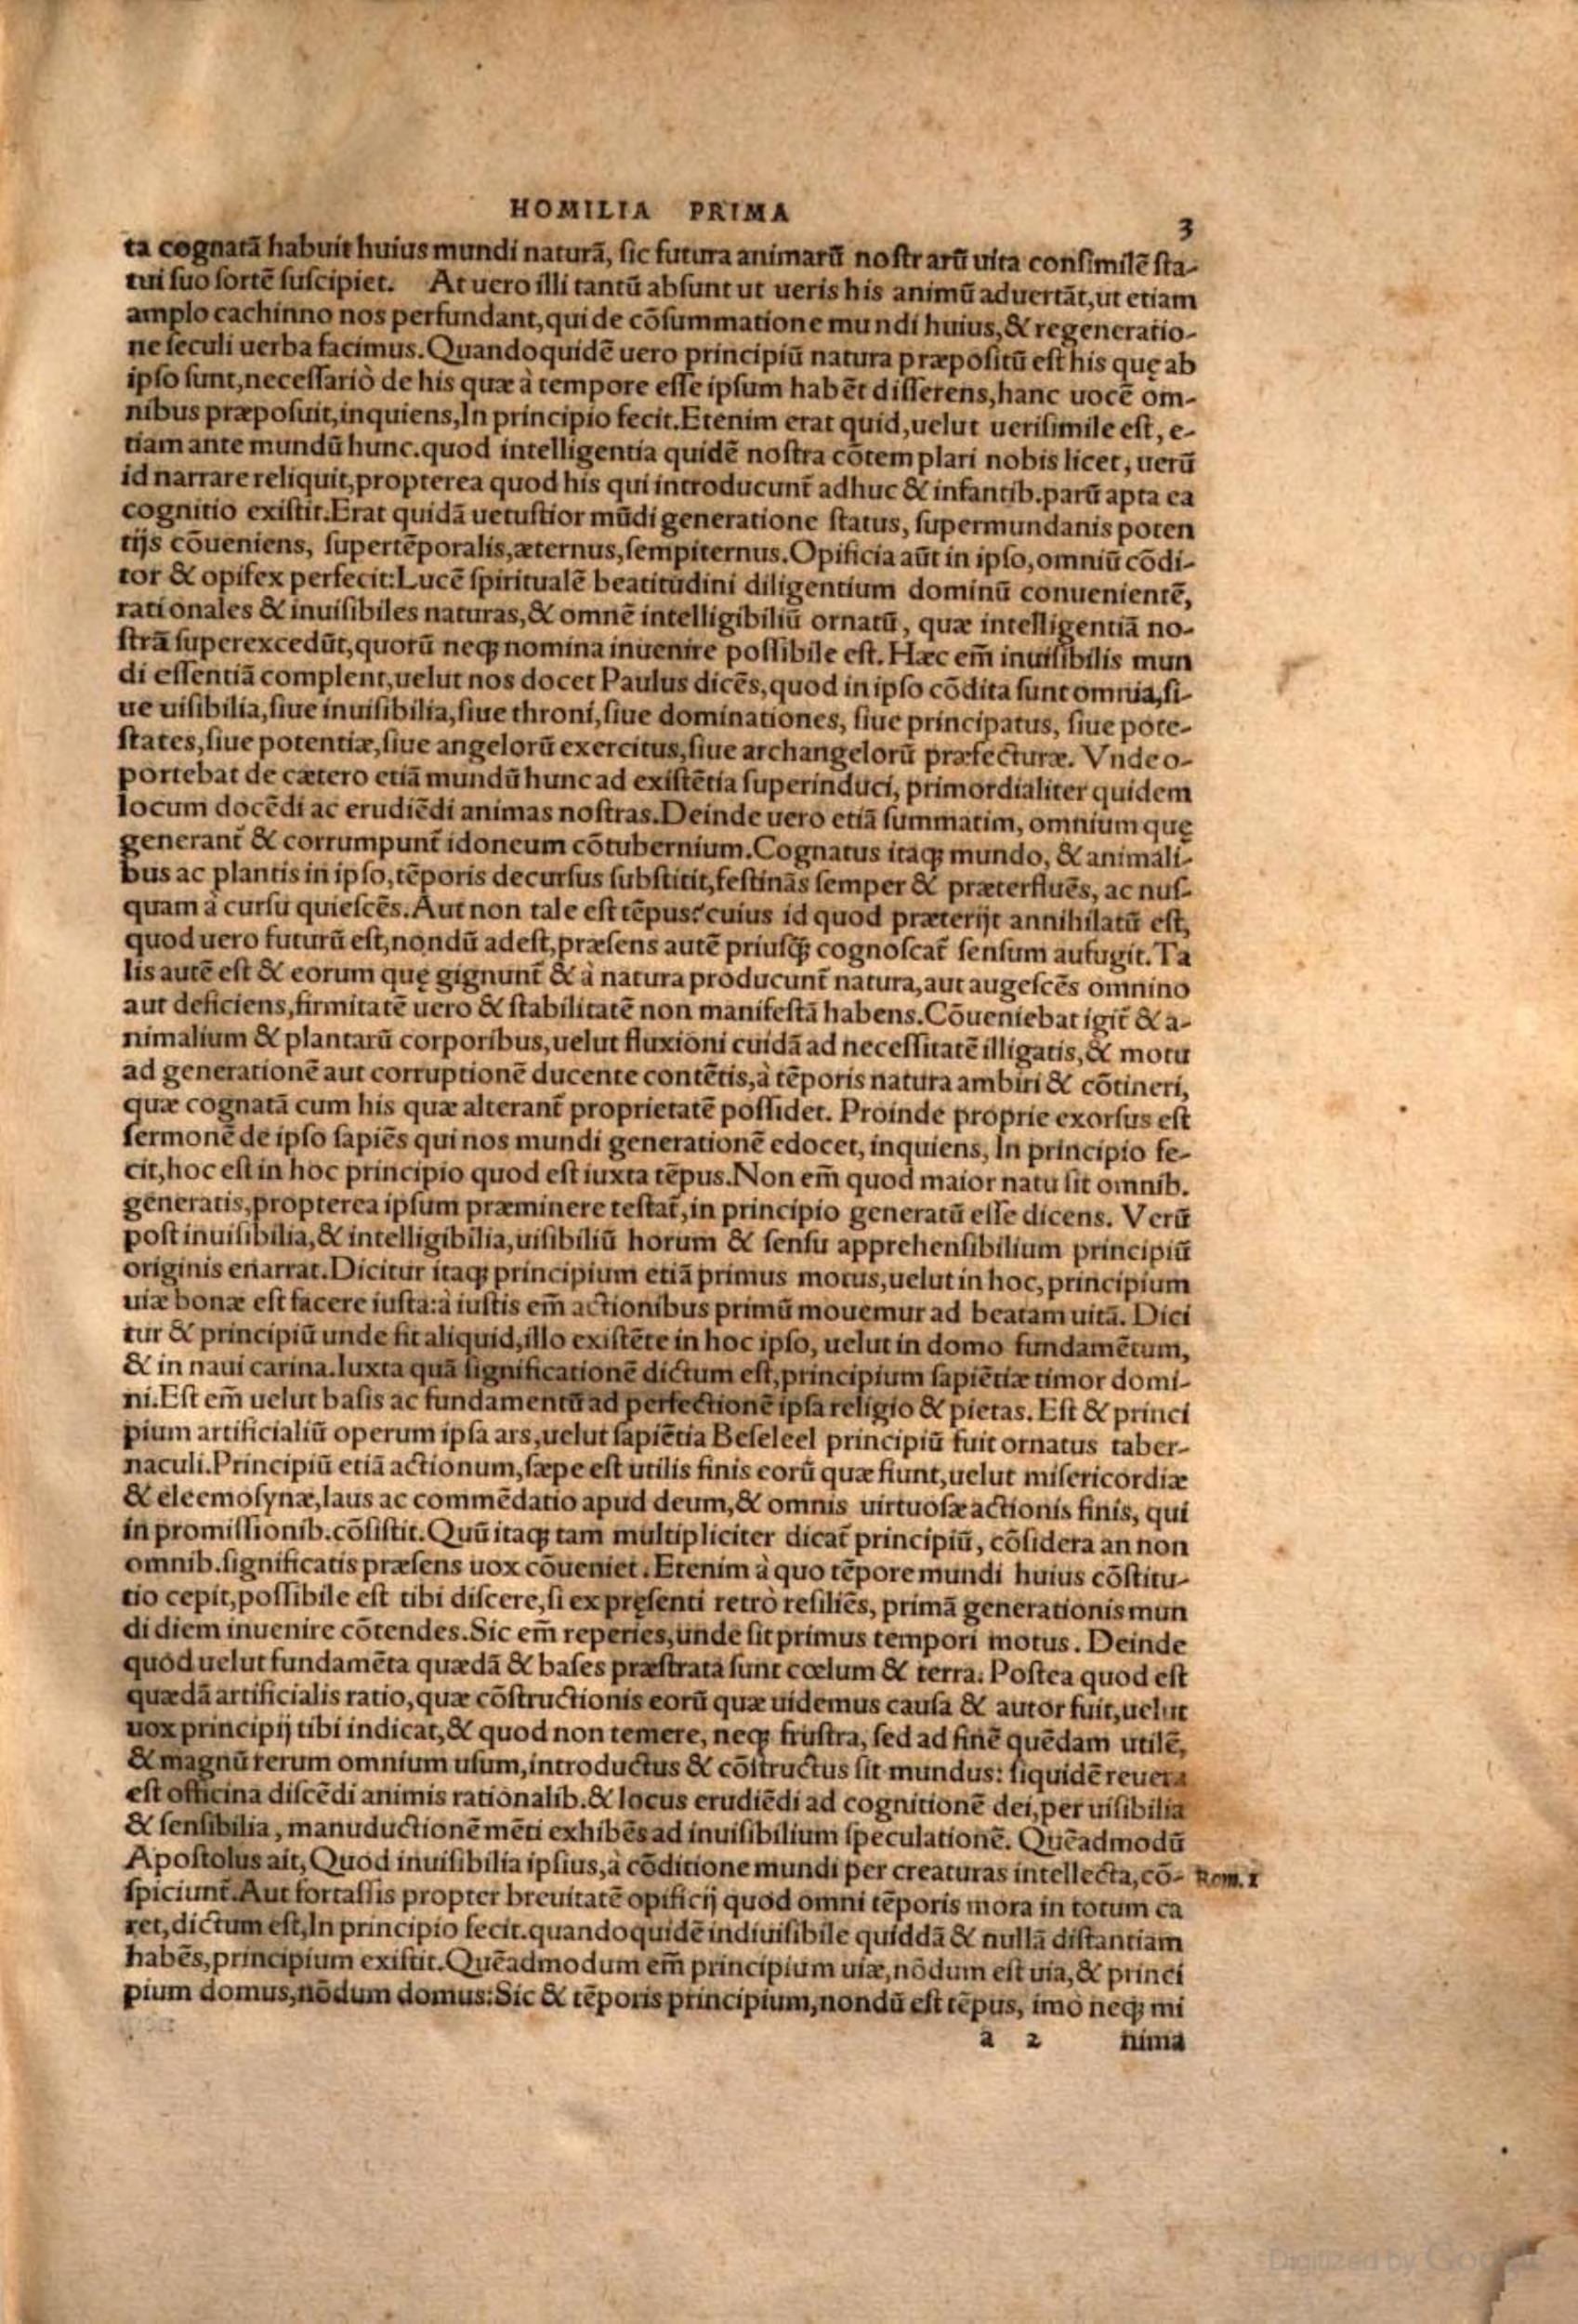 HOMILIA PRIMA
3
ta cognatã habuit huius mundi naturã, sic futura animarũ nostrarũ uita consimilẽ sta-
tui suo sortẽ suscipiet. At uero illi tantũ absunt ut ueris his animũ aduertãt, ut etiam
amplo cachinno nos perfundant, qui de cõsummatione mundi huius, & regeneratio-
ne seculi uerba facimus. Quandoquidẽ uero principiũ natura præpositũ est his quę ab
ipso sunt, necessariò de his quæ à tempore esse ipsum habẽt disserens, hanc uocẽ om-
nibus præposuit, inquiens, In principio fecit. Etenim erat quid, uelut uerisimile est, e-
tiam ante mundũ hunc. quod intelligentia quidẽ nostra cõtemplari nobis licet, uerũ
id narrare reliquit, propterea quod his qui introducunt̃ adhuc & infantib. parũ apta ea
cognitio existit. Erat quidã uetustior mũdi generatione status, supermundanis poten
tijs cõueniens, supertẽporalis, æternus, sempiternus. Opificia aũt in ipso, omniũ cõdi-
tor & opifex perfecit: Lucẽ spiritualẽ beatitudini diligentium dominũ conuenientẽ,
rationales & inuisibiles naturas, & omnẽ intelligibiliũ ornatũ, quæ intelligentiã no-
strã superexcedũt, quorũ neq; nomina inuenire possibile est. Hæc em̃ inuisibilis mun
di essentiã complent, uelut nos docet Paulus dicẽs, quod in ipso cõdita sunt omnia, si-
ue uisibilia, siue inuisibilia, siue throni, siue dominationes, siue principatus, siue pote-
states, siue potentiæ, siue angelorũ exercitus, siue archangelorũ præfecturæ. Vnde o-
portebat de cætero etiã mundũ hunc ad existẽtia superinduci, primordialiter quidem
locum docẽdi ac erudiẽdi animas nostras. Deinde uero etiã summatim, omnium quę
generant̃ & corrumpunt̃ idoneum cõtubernium. Cognatus itaq; mundo, & animali-
bus ac plantis in ipso, tẽporis decursus substitit, festinãs semper & præterfluẽs, ac nus-
quam à cursu quiescẽs. Aut non tale est tẽpus? cuius id quod præterijt annihilatũ est,
quod uero futurũ est, nondũ adest, præsens autẽ priusq̃; cognoscat̃ sensum aufugit. Ta
lis autẽ est & eorum quę gignunt̃ & à natura producunt̃ natura, aut augescẽs omnino
aut deficiens, firmitatẽ uero & stabilitatẽ non manifestã habens. Cõueniebat igit̃ & a-
nimalium & plantarũ corporibus, uelut fluxioni cuidã ad necessitatẽ illigatis, & motu
ad generationẽ aut corruptionẽ ducente contẽtis, à tẽporis natura ambiri & cõtineri,
quæ cognatã cum his quæ alterant̃ proprietatẽ possidet. Proinde proprie exorsus est
sermonẽ de ipso sapiẽs qui nos mundi generationẽ edocet, inquiens, In principio fe-
cit, hoc est in hoc principio quod est iuxta tẽpus. Non em̃ quod maior natu sit omnib.
generatis, propterea ipsum præminere testat̃, in principio generatũ esse dicens. Verũ
post inuisibilia, & intelligibilia, uisibiliũ horum & sensu apprehensibilium principiũ
originis enarrat. Dicitur itaq; principium etiã primus motus, uelut in hoc, principium
uiæ bonæ est facere iusta: à iustis em̃ actionibus primũ mouemur ad beatam uitã. Dici
tur & principiũ unde fit aliquid, illo existẽte in hoc ipso, uelut in domo fundamẽtum,
& in naui carina. Iuxta quã significationẽ dictum est, principium sapiẽtiæ timor domi-
ni. Est em̃ uelut basis ac fundamentũ ad perfectionẽ ipsa religio & pietas. Est & princi
pium artificialiũ operum ipsa ars, uelut sapiẽtia Beseleel principiũ fuit ornatus taber-
naculi. Principiũ etiã actionum, sæpe est utilis finis eorũ quæ fiunt, uelut misericordiæ
& eleemosynæ, laus ac commẽdatio apud deum, & omnis virtuosæ actionis finis, qui
in promissionib. cõsistit. Quũ itaq; tam multipliciter dicat̃ principiũ, cõsidera an non
omnib. significatis præsens uox cõueniet. Etenim à quo tẽpore mundi huius cõstitu-
tio cepit, possibile est tibi discere, si ex pręsenti retrò resiliẽs, primã generationis mun
di diem inuenire cõtendes. Sic em̃ reperies, unde sit primus tempori motus. Deinde
quod uelut fundamẽta quædã & bases præstrata sunt cœlum & terra. Postea quod est
quædã artificialis ratio, quæ cõstructionis eorũ quæ uidemus causa & autor fuit, uelut
uox principij tibi indicat, & quod non temere, neq; frustra, sed ad finẽ quẽdam utilẽ,
& magnũ rerum omnium usum, introductus & cõstructus sit mundus: siquidẽ reuera
est officina discẽdi animis rationalib. & locus erudiẽdi ad cognitionẽ dei, per uisibilia
& sensibilia, manuductionẽ mẽti exhibẽs ad inuisibilium speculationẽ. Quẽadmodũ
Apostolus ait, Quod inuisibilia ipsius, à cõditione mundi per creaturas intellecta, cõ- Rom. 1
spiciunt̃. Aut fortassis propter breuitatẽ opificij quod omni tẽporis mora in totum ca
ret, dictum est, In principio fecit. quandoquidẽ indiuisibile quiddã & nullã distantiam
habẽs, principium existit. Quẽadmodum em̃ principium uiæ, nõdum est uia, & princi
pium domus, nõdum domus: Sic & tẽporis principium, nondũ est tẽpus, imò neq; mi
a 2 nima
Digitized by Google